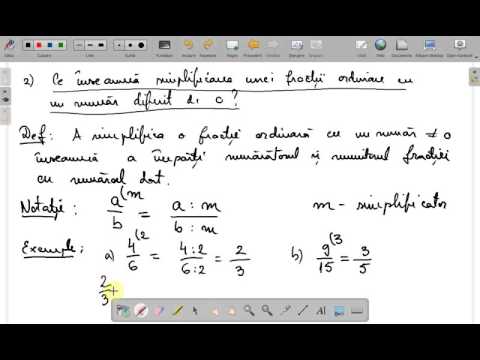 2) Ce înseamnă simplificarea unei fracții ordinare cu
un număr diferit de 0?
Def: A simplifica o fracție ordinară cu un număr ≠ 0
înseamnă a împărți numărătorul și numitorul fracției
cu numărul dat.
Notație: a/b ^(m = a : m / b : m m - simplificator
Exemple: a) 4/6 ^(2 = 4:2 / 6:2 = 2/3 b) 9/15 ^(3 = 3/5
2/3